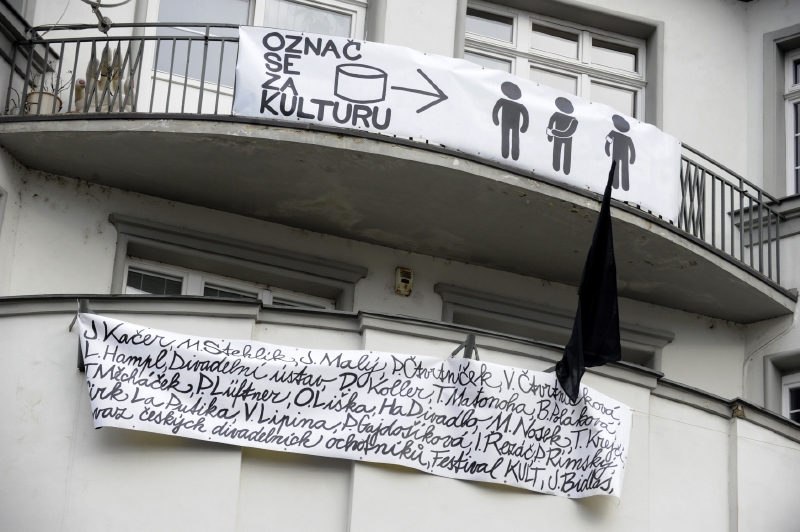 OZNAČ
SE
ZA
KULTURU
J Kačer, M Stehlík, J. Malý, P Čtvrtníček, V. Čtvrtníčková
L. Hampl, Divadelní ústav D Koller, T. Matonoha, B. Poláková
T Měcháček, P Lüftner, O Liška, Ha Divadlo M. Nosek, T. Krejčí
Cirk La Putika, V Lipina, P Gajdošíková, I Rezáč, D Rimský
svaz českých divadelních ochotníků, Festival KULT, J. Bidlas,